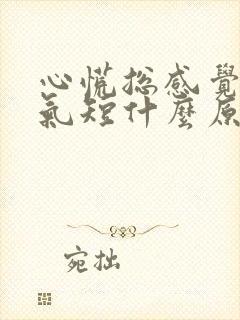 心慌總感覺
氣短什麼原
宛拙